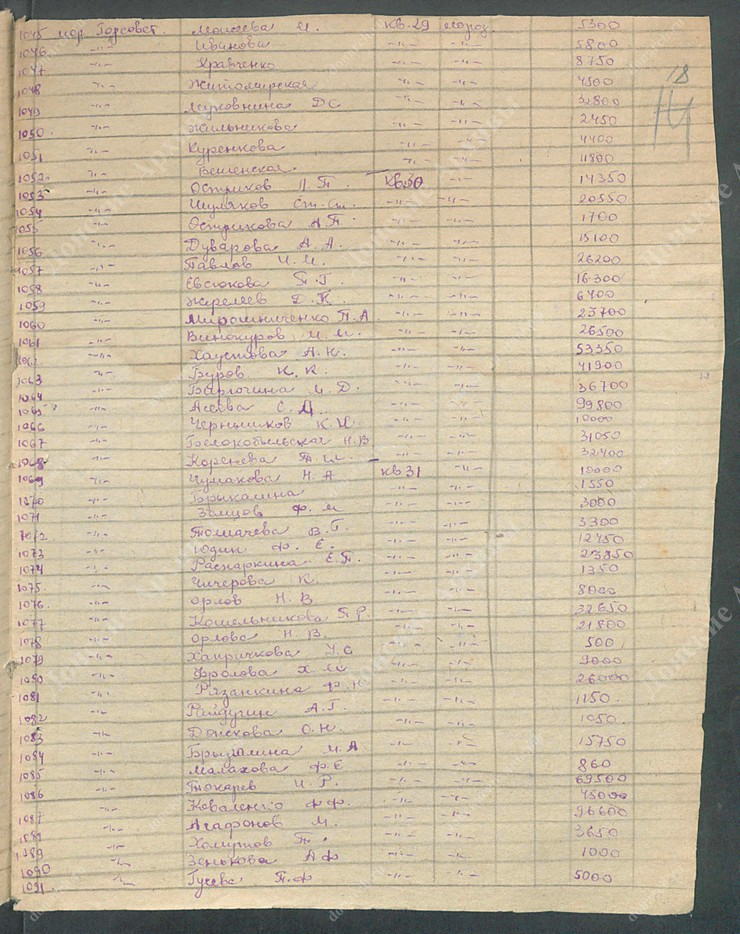 1045 мор. Горсовет. Моисеева И. кв. 29 мороз. 5300
1046 -"- Иванова -"- -"- 5800
1047 -"- Кравченко -"- -"- 8750
1048 -"- Житомирская -"- -"- 4500
1049 -"- Муховнина Д С -"- -"- 32800
1050. -"- Жильникова -"- -"- 2450
1051 -"- Куренкова -"- -"- 4400
1052. -"- Вешенская. -"- -"- 11800
1053 -"- Остриков Л. П. кв 30 -"- 14350
1054 -"- Шуляков Ст. Ст. -"- -"- 20550
1055 -"- Острикова А П. -"- -"- 1700
1056 -"- Дуварова А. А. -"- -"- 15100
1057 -"- Павлов И. И. -"- -"- 26200
1058 -"- Евсюкова П. Г. -"- -"- 16300
1059 -"- Жирелеев Д. К. -"- -"- 6400
1060 -"- Мирошниченко П. А. -"- -"- 23700
1061 -"- Винокуров И. И. -"- -"- 26500
-"- Хаустова А. К. -"- -"- 53350
1063 -"- Буров К. К. -"- -"- 41900
1064 -"- И. Д. -"- -"- 36700
1065 -"- Асеева С. Д. -"- -"- 99800
1066 -"- Чернышков К. И. -"- -"- 10000
1067 -"- Белокобыльская Н. В -"- -"- 31050
1068 -"- Коренева -"- -"- 32400
1069 -"- Чумакова Н. А кв 31 -"- 10000
1070 -"- Брыкалина -"- -"- 1550
1071 -"- Земцов Ф. М -"- -"- 3000
1072 -"- Толмачева В. Г. -"- -"- 3300
1073 -"- Юдин Ф. Е. -"- -"- 12450
1074 -"- Распаркина Е. П. -"- -"- 23850
1075. -"- Чичерова К. -"- -"- 1350
1076. -"- Орлов Н. В -"- -"- 8000
1077 -"- Кошельникова П. Р. -"- -"- 32650
1078 -"- Орлова Н. В. -"- -"- 21800
1079 -"- Хапричкова У. С -"- -"- 500
1080 -"- Фролова Х. М -"- -"- 9000
1081 -"- Рязанкина Ф. Н -"- -"- 26000
1082 -"- Райдугин А. Г. -"- -"- 1150.
1083 -"- Донскова О. Н. -"- -"- 1050.
1084 -"- Брызгалина М. А -"- -"- 15750
1085 -"- Малахова Ф. Е -"- -"- 860
1086 -"- Токарев И. Р. -"- -"- 69500
1087 -"- Коваленко Ф. Ф. -"- -"- 45000
-"- Агафонов М. -"- -"- 96600
1089 -"- Хомутов П. -"- -"- 3650
1090 -"- Зенькова А Ф -"- -"- 1000
1091. -"- Гусева П. Ф -"- -"- 5000
18